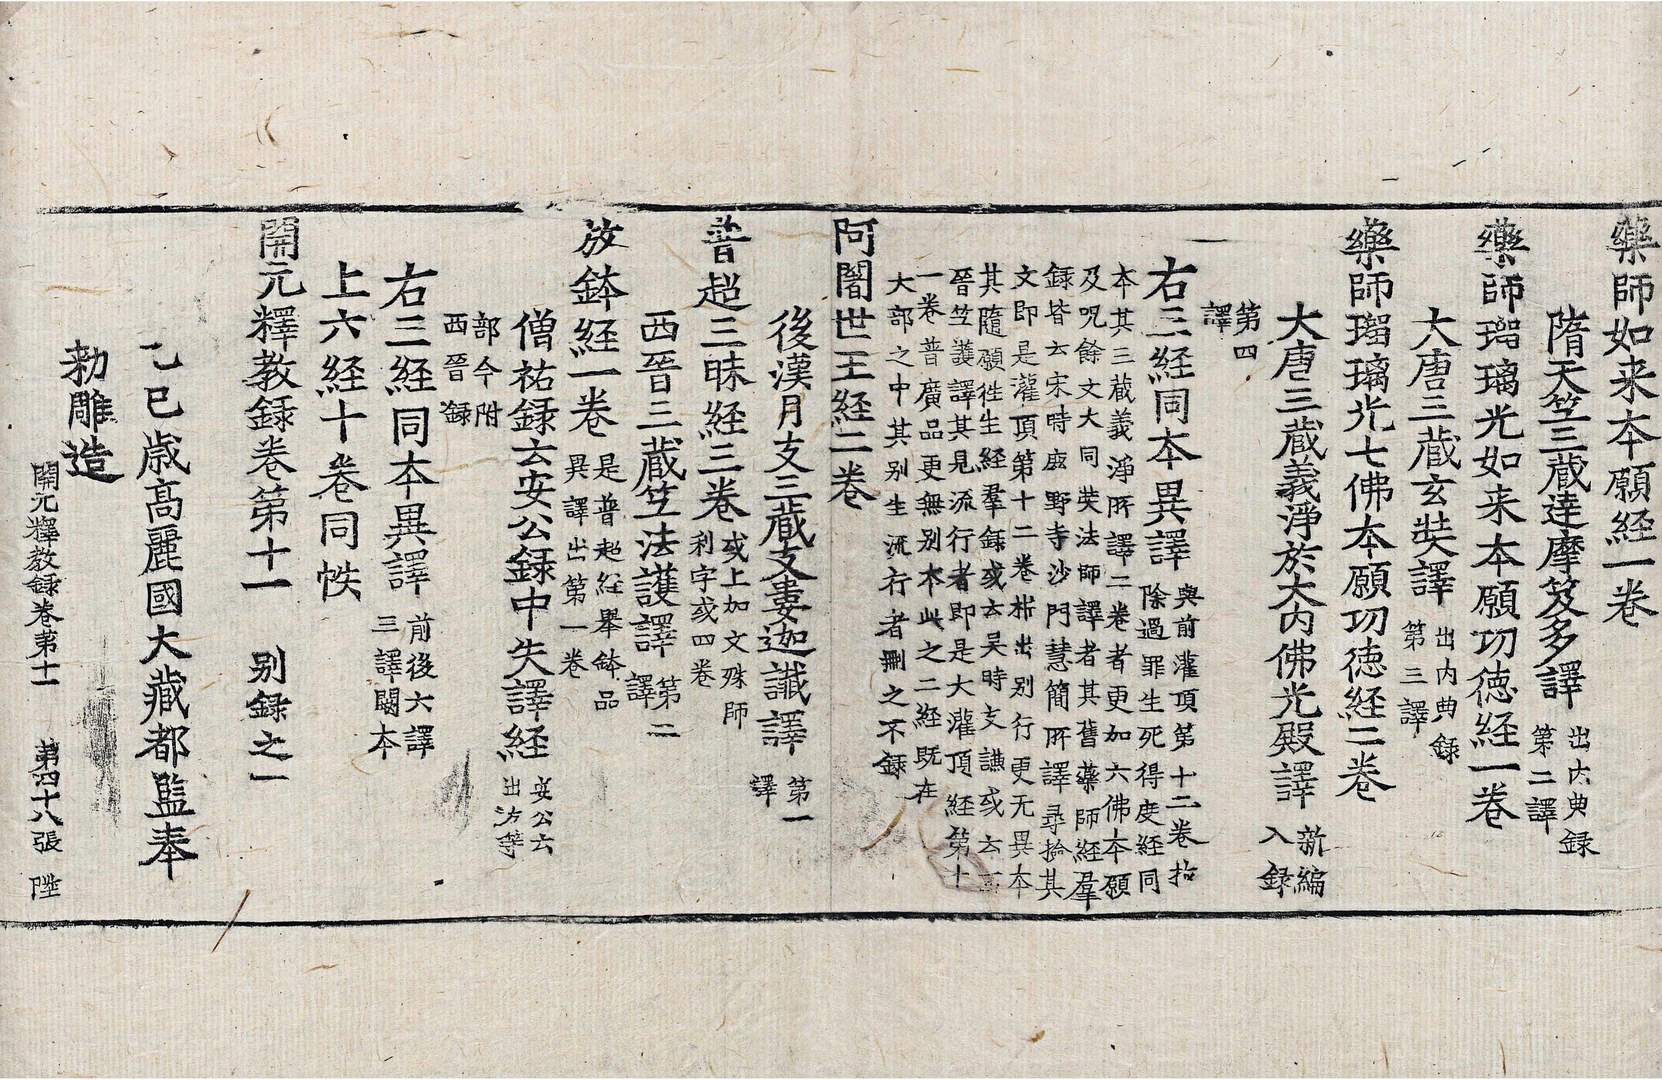 藥師如来本願経一卷
隋天笁三藏達摩笈多譯 出内典録 第二譯
藥師瑠璃光如来本願功徳経一卷
大唐三藏玄奘譯 出内典録 第三譯
藥師瑠璃光七佛本願功徳経二卷
大唐三藏義淨於大内佛光殿譯 新編入録
第四譯
右三経同本異譯 與前灌頂第十二卷拔除過罪生死得度経同
本其三藏義淨所譯二卷者更加六佛本願
及呪餘文大同奘法師譯者其舊藥師経羣
録皆云宋時鹿野寺沙門慧簡所譯尋撿其
文即是灌頂第十二卷析出别行更无異本
其隨願徃生経羣録或云吴時支謙或云西
晉笁護譯其見流行者即是大灌頂経第十
一卷普廣品更無别本此之二経既在
大部之中其别生流行者刪之不録
阿闍世王経二卷
後漢月支三藏支婁迦讖譯 第一譯
普超三昧経三卷 或上加文殊師利字或四卷
西晉三藏笁法護譯 第二譯
放鉢経一卷 是普超経舉鉢品異譯出第一卷
僧祐録云安公録中失譯経 安公云出方等
部今附西晉録
右三経同本異譯 前後六譯三譯闕本
上六経十卷同帙
開元釋教録卷第十一 别録之一
乙巳歳髙麗國大藏都監奉
勅雕造
開元釋教録卷第十一 第四十八張 陛